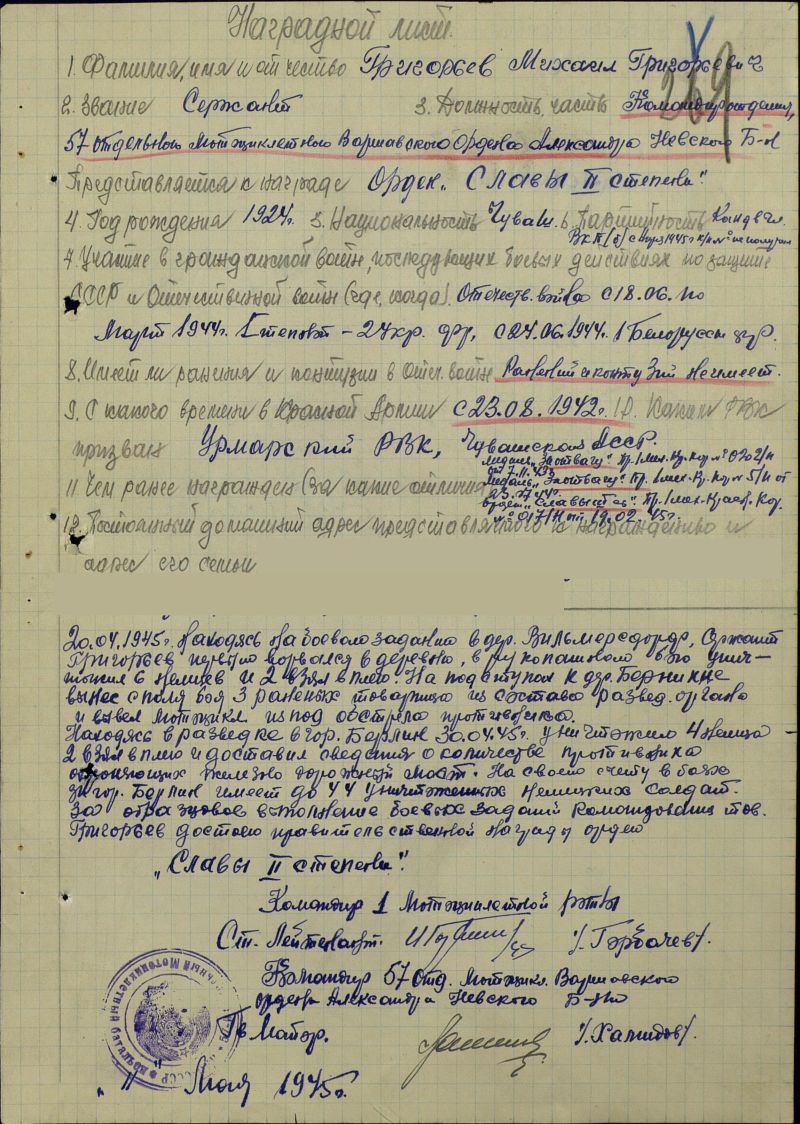 Наградной лист.
269
1. Фамилия, имя и отчество Григорьев Михаил Григорьевич
2. Звание Сержант 3. Должность, часть Командир отделения,
57 отдельного Мотоциклетного Варшавского Ордена Александра Невского Б-н
Представляется к награде Орден „Славы II степени"
4. Год рождения 1924г. 5. Национальность Чуваш. 6. Партийность Канд в чл.
ВКП/б/ с 1945г к/к № не получил
7. Участие в гражданской войне, последующих боевых действиях по защите
СССР и Отечественной войне (где, когда). Отечеств. война с 18.06. по
Март 1944г. Степной - 2 Укр. фр, с 24.06.1944. 1 Белорусск фр.
8. Имеет ли ранения и контузии в Отеч. войне Ранений и контузий не имеет.
9. С какого времени в Красной Армии с 23.08.1942г. 10. Каким РВК
призван Урмарский РВК, Чувашской АССР.
Медаль „За отвагу". Пр. 1 мех. Кр. Кор № 020/н
от 7.11.43г
11. Чем ранее награжден (за какие отличия Медаль „За отвагу" Пр. 1 мех. Кр. Кор № 5/н от
орден „Славы III ст". Пр. 1 мех. Краск. Кор.
№ 017/н от 19.02.45г.
12. Постоянный домашний адрес представляемого к награждению и
адрес его семьи
20.04.1945г. находясь на боевом задании в дер. Вильмерсдорф, Сержант
Григорьев первым ворвался в деревню, в рукопашном бою унич-
тожил немцев и 2 взял в плен. На подступах к дер. Бернике
вынес с поля боя 3 раненых товарища из состава развед. органа
и вывел мотоцикл из под обстрела противника.
Находясь в разведке в гор. Берлин 30.04.45г. уничтожил 4 немца
2 взял в плен и доставил сведения о количестве противника
обороняющих железно дорожный мост. На своем счету в боях
за гор. Берлин имеет до 44 уничтоженных немецких солдат.
За образцовое выполнение боевых заданий командования тов.
Григорьев достоен правительственной награды орден
„Славы II степени".
Командир 1 Мотоциклетной роты
Ст. Лейтенант. /Горбачев/.
Командир 57 отд. мотоцикл. Варшавского
ордена Александра Невского Б-на
Гв Майор. /Халидов/.
„11" Мая 1945г.